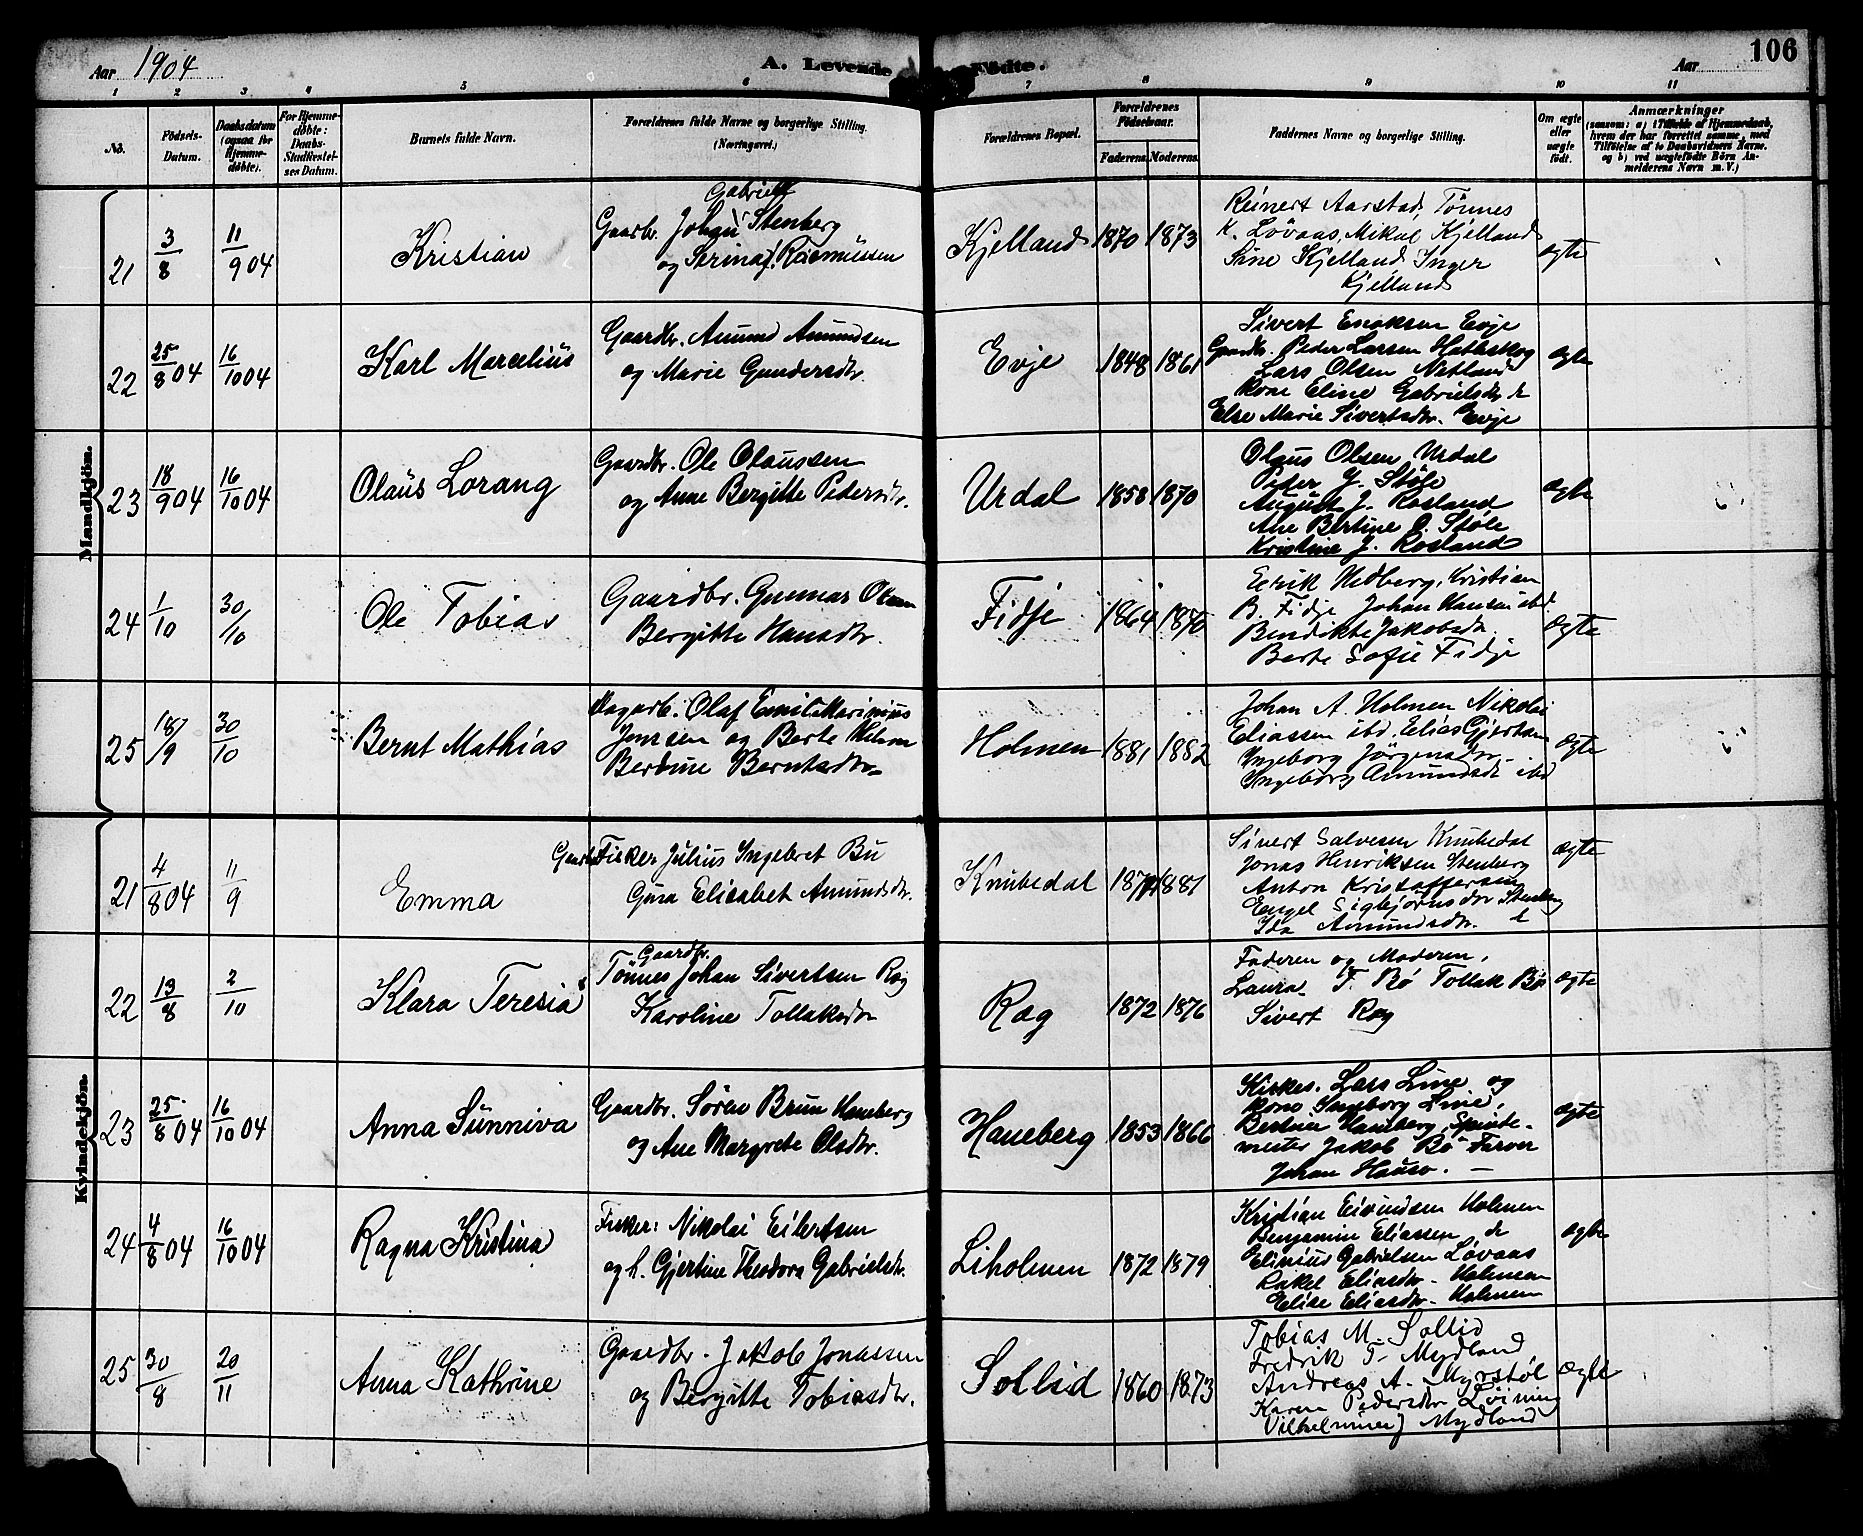 Aar 1904
A. Levende Födte.
Aar
106
1 2 3 4 5 6 7 8 9 10 11
No.
Födsels-
Datum.
Daabsdatum
(ogsaa for
Hjemme-
döbte).
For Hjemme-
döbte:
Daabs-
Stadfæstel-
ses Datum.
Barnets fulde Navn.
Forældrenes fulde Navne og borgerlige Stilling.
(Næringsvei.)
Forældrenes Bopæl.
Forældrenes
Födselsaar.
Faderens. Moderens.
Faddernes Navne og borgerlige Stilling.
Om ægte
eller
uægte
födt.
Anmærkninger
(saasom: a) i Tilfælde af Hjemmedaab,
hvem der har forrettet samme, med
Tilföielse af to Daabsvidners Navne.
og b) ved uægtefödte Börn An-
melderens Navn m. V.)
Mandkjön.
21 3/8 11/9 04 Kristian
Gaarbr. Johan Stenberg
og Serina J. Rasmussen
Kjelland 1870 1873
Reinert Aarstad, Tönnes
K. Lövaas, Mikal Kjelland
Sine Kjelland Inger
Kjelland
ægte
22 25/8 04 16/10 04 Karl Marcelius
Gaardbr. Amund Amundsen
og Marie Gundersdtr.
Evje 1848 1861
Sivert Eriksen Evje
Gaardbr. Peder Larsen
Lars Olsen Netland
Kone Eline Gabrielsdtr
Else Marie Sivertsdtr. Evje
ægte
23 18/9 04 16/10 04 Olaüs Lorang
Gaardbr. Ole Olaussen
og Anne Bergitte Pedersdtr.
Urdal 1858 1870
Olaus Olsen Urdal
Peder J. Støle
August J. Rosland
Ane Bertine O. Støle
Kristine J. Rosland
ægte
24 1/10 30/10 Ole Tobias
Gaardbr. Gunnar Olsen
Bergitte Hansdtr.
Fidje 1864 1870
Eerik Hedberg, Kristian
B. Fidje Johan Hansen ibd
Bendikte Jakobsdtr
Berte Sofie Fidje
ægte
25 18/9 30/10 Bernt Mathias
Dagarb. Olaf Emil Marinius
Jensen og Berte
Berdine Berntsdtr
Holmen 1881 1882
Johan A Holmen Nikolai
Eliassen ibd. Elias
Ingeborg Jörgensdtr
Ingeborg Amundsdtr ibd
ægte
Kvindekjön.
21 4/8 04 11/9 Emma
Fisker Julius Ingebret Bu
Gura Elisabet Amundsdtr.
Knibedal 1881
Sivert Salvesen Knibedal
Jonas Henriksen Stenberg
Anton Kristoffersen
Engel Sigbjörnsdtr Stenberg
Ida Amundsdtr.
ægte
22 13/8 2/10 Klara Teresia
Gaardbr.
Tönnes Johan Sivertsen Rag
Karoline Tollaksdtr
Rag 1872 1876
Faderen og Moderen,
Laura T. Bö Tollak Bö
Sivert Rag
ægte
23 25/8 04 16/10 04 Anna Sünniva
Gaardbr. Søren Brun Haneberg
og Ane Margrete Olsdtr.
Haneberg 1853 1866
Kirkes. Lars Line og
kone Ingeborg Line,
Haneberg
Jakob Bö Farver
Johan
ægte
24 4/8 04 16/10 04 Ragna Kristina
Fisker: Nikolai Eilertsen
og h. Gjertine Theodora Gabrielsdtr.
Liholmen 1872 1879
Kristian Eivindsen Holmen
Benjamine Eliassen, de
Elinius Gabrielsen Lövaas
Rakel Eliasdtr. Holmen
Elise Eliasdtr. Holmen
ægte
25 30/8 20/11 Anna Kathrine
Gaardbr. Jakob Jonassen
og Bergitte Tobiasdtr.
Sollid 1860 1873
Tobias M. Sollid
Fredrik T. Mydland
Andreas A. Myrstöl
Karen Pedersdtr Löining
Vilhelmine J Mydland
ægte